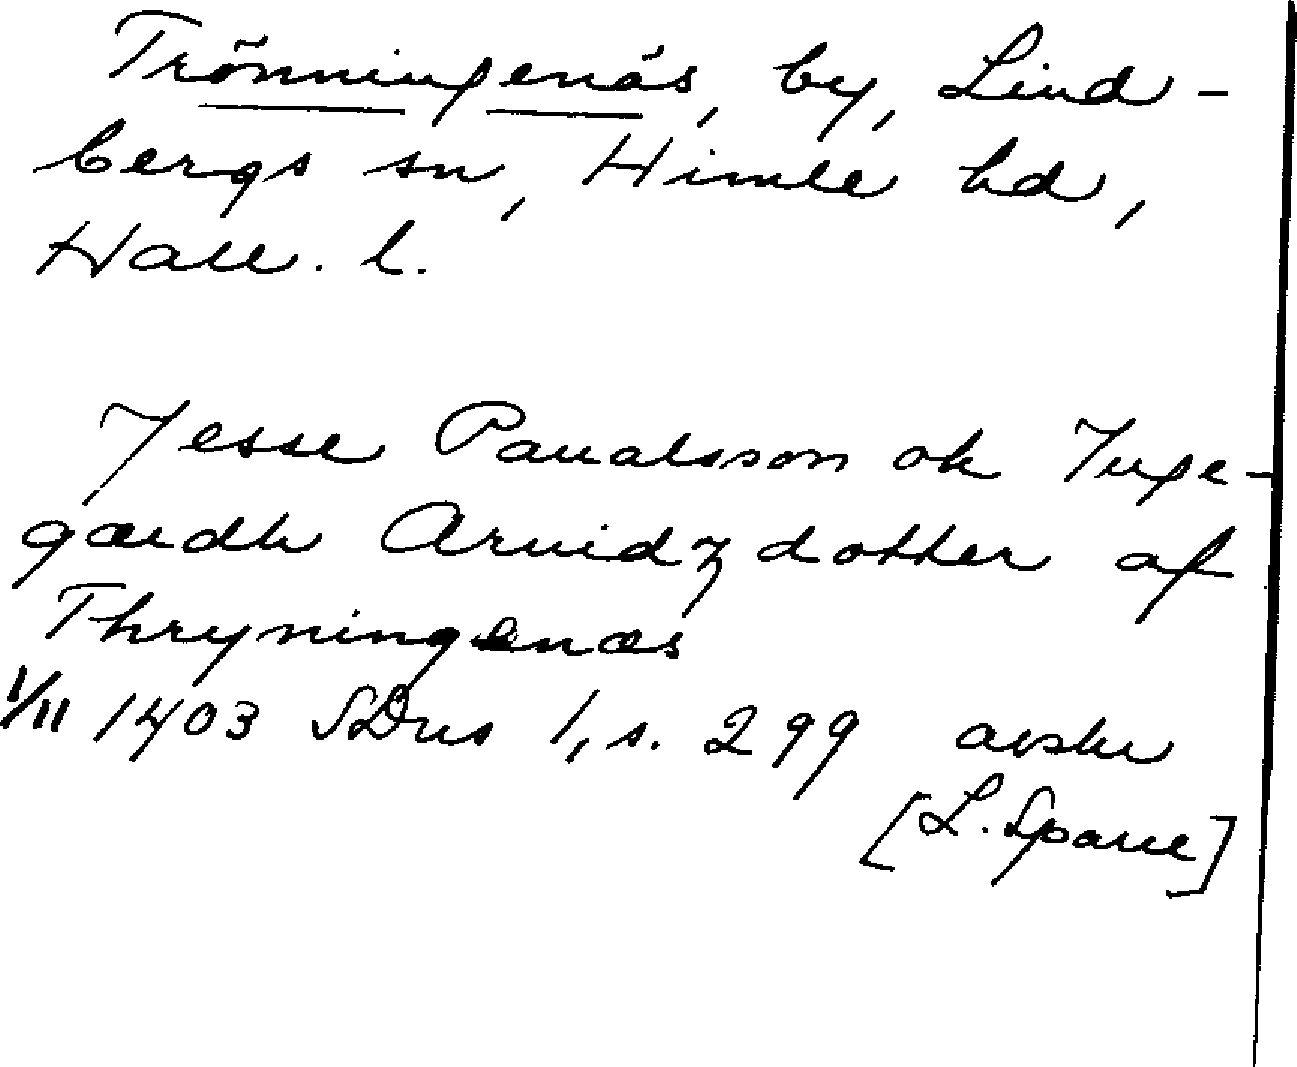 Trönningenäs, by, Lind-
bergs sn, Himle hd,
Hall. l.
Jesse Paualsson ok Inge-
gærdh Aruidz dotter af
Thryningenæs
1/11 1403 SDns 1, s. 299 avskr
[L. Sparre]